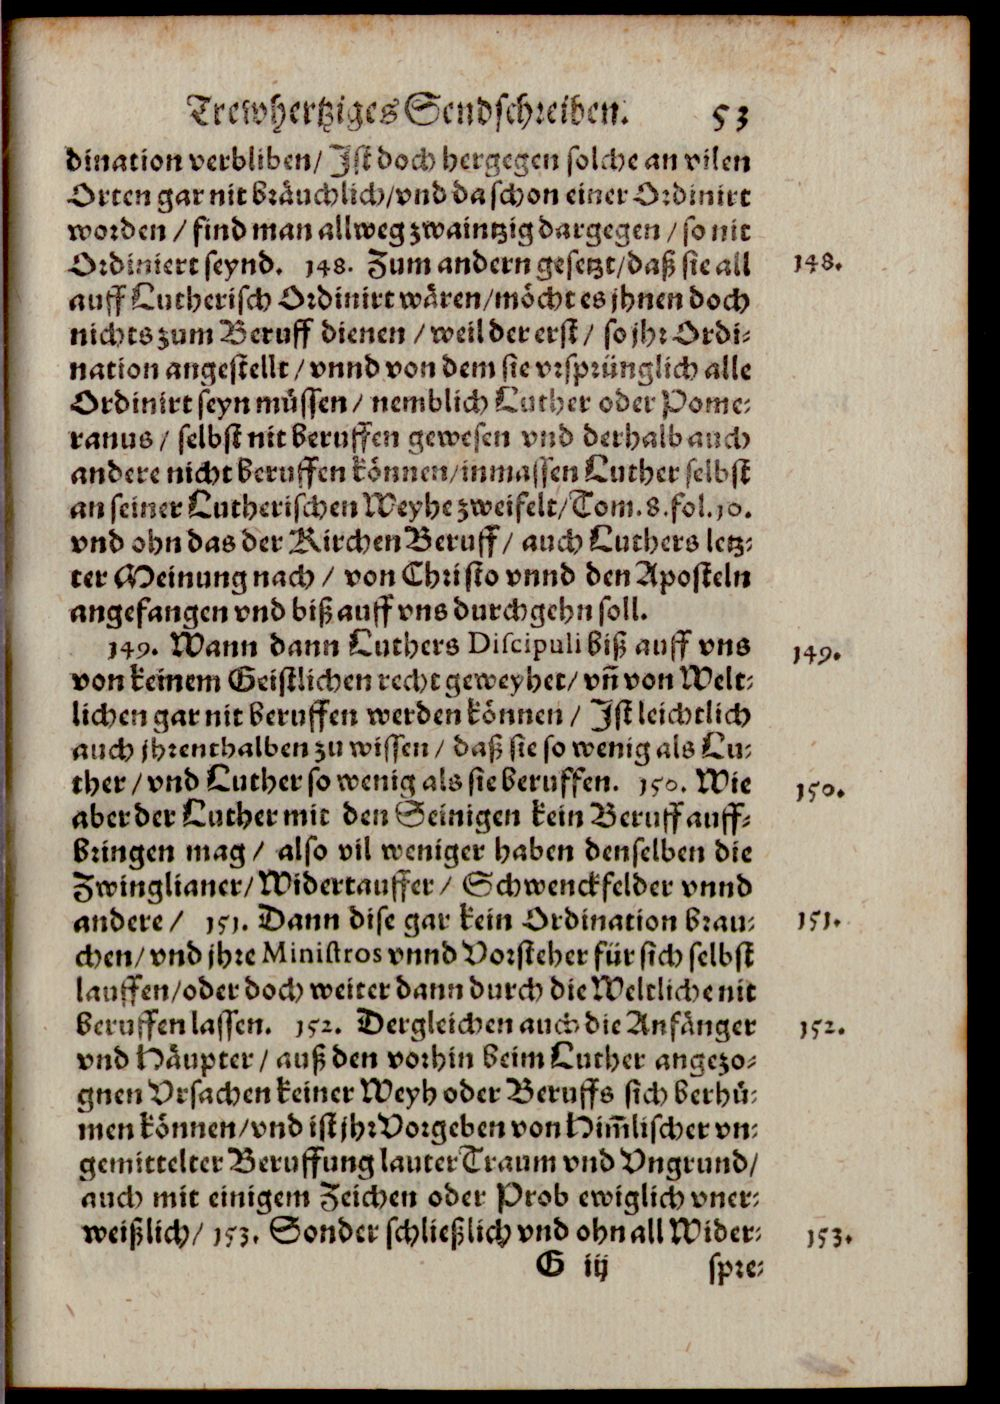 Trewhertziges Sendschreiben. 53
dination verbliben/ Jst doch hergegen solche an vilen
Orten gar nit bräuchlich/vnd da schon einer Ordinirt
worden / find man allweg zwaintzig dargegen / so nit
Ordiniert seynd. 148. Zum andern gesetzt/daß sie all 148.
auff Lutherisch Ordinirt wären/möcht es jhnen doch
nichts zum Beruff dienen / weil der erst / so jhr Ordi-
nation angestellt / vnnd von dem sie vrsprünglich alle
Ordinirt seyn müssen / nemblich Luther oder Pome-
ranus / selbst nit beruffen gewesen vnd derhalb auch
andere nicht beruffen können/inmassen Luther selbst
an seiner Lutherischen Weyhe zweifelt/Tom. 8. fol. 10.
vnd ohn das der Kirchen Beruff / auch Luthers letz-
ter Meinung nach / von Christo vnnd den Aposteln
angefangen vnd biß auff vns durchgehn soll.
149. Wann dann Luthers Discipuli biß auff vns 149.
von keinem Geistlichen recht geweyhet/ vn̄ von Welt-
lichen gar nit beruffen werden können / Jst leichtlich
auch jhrenthalben zu wissen / daß sie so wenig als Lu-
ther / vnd Luther so wenig als sie beruffen. 150. Wie 150.
aber der Luther mit den Seinigen kein Beruff auff-
bringen mag / also vil weniger haben denselben die
Zwinglianer/ Widertauffer / Schwenckfelder vnnd
andere / 151. Dann dise gar kein Ordination brau- 151.
chen/ vnd jhre Ministros vnnd Vorsteher für sich selbst
lauffen/oder doch weiter dann durch die Weltliche nit
beruffen lassen. 152. Dergleichen auch die Anfänger 152.
vnd Häupter / auß den vorhin beim Luther angezo-
gnen Vrsachen keiner Weyh oder Beruffs sich berhü-
men können/vnd ist jhr Vorgeben von Him̄lischer vn-
gemittelter Beruffung lauter Traum vnd Vngrund/
auch mit einigem Zeichen oder Prob ewiglich vner-
weißlich/ 153. Sonder schließlich vnd ohn all Wider- 153.
G iij spre-